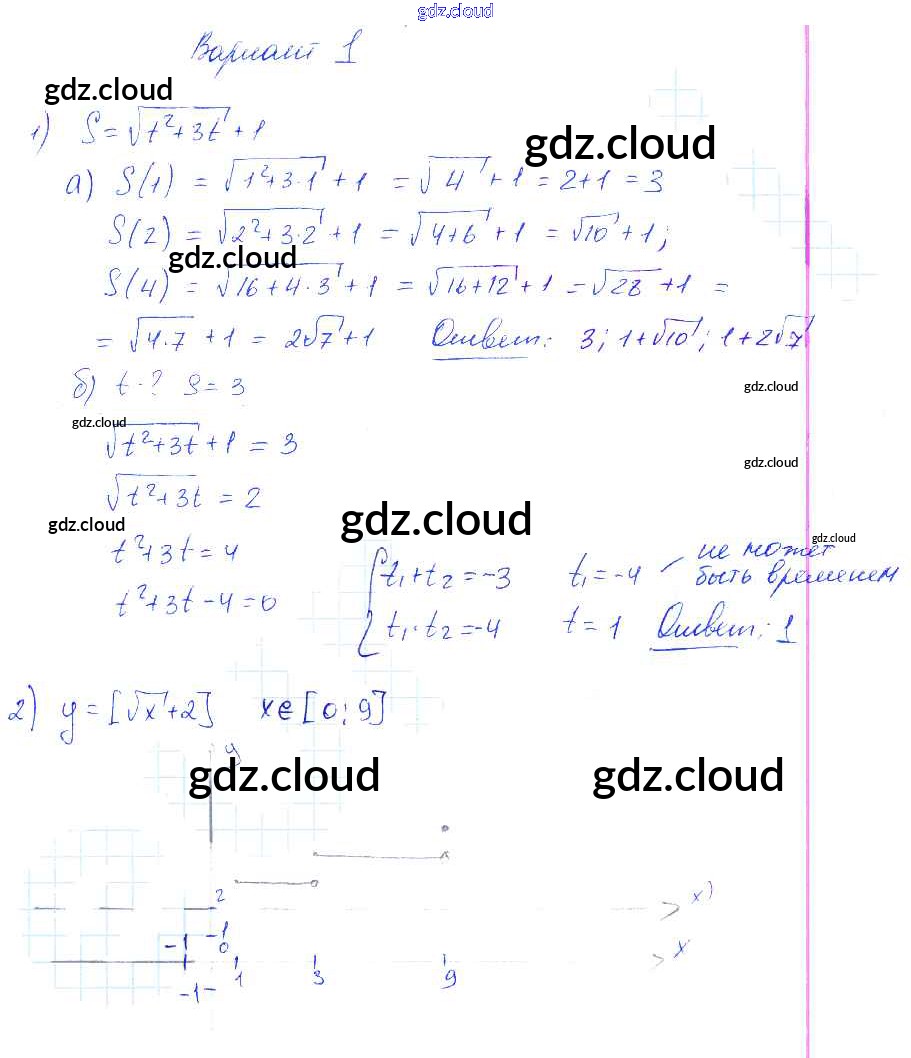 gdz.cloud
Вариант 1
gdz.cloud
1) S = √(t²+3t) + 1
gdz.cloud
а) S(1) = √(1²+3·1) + 1 = √4 + 1 = 2+1 = 3
S(2) = √(2²+3·2) + 1 = √(4+6) + 1 = √10 + 1;
gdz.cloud
S(4) = √(16+4·3) + 1 = √(16+12) + 1 = √28 + 1 =
= √(4·7) + 1 = 2√7 + 1 Ответ: 3; 1+√10; 1+2√7
б) t-? S = 3
gdz.cloud
gdz.cloud
√(t²+3t) + 1 = 3
gdz.cloud
√(t²+3t) = 2
gdz.cloud
gdz.cloud
gdz.cloud
t²+3t = 4
t²+3t-4=0
{ t₁+t₂ = -3 t₁ = -4 - не может быть временем
t₁·t₂ = -4 t = 1 Ответ: 1
2) y = [√x+2] x∈[0; 9]
y
gdz.cloud
gdz.cloud
2
x)
-1
-1
0
x
-1
1
3
9